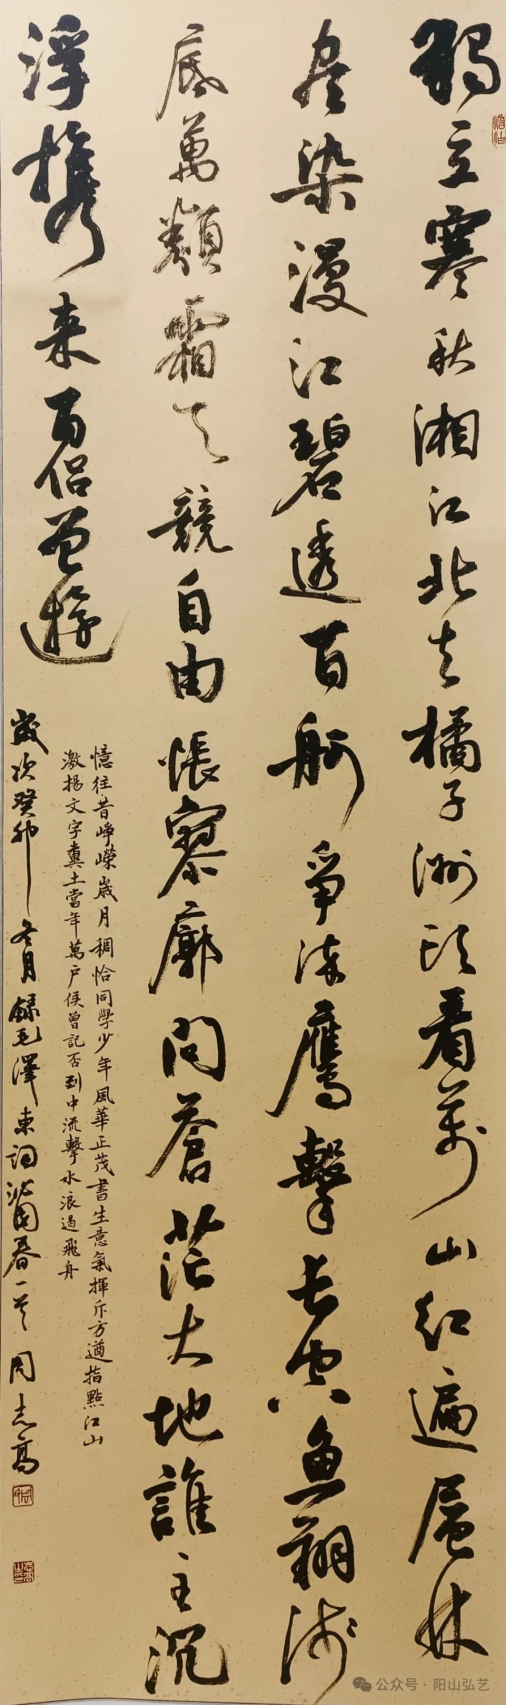 獨立寒秋湘江北去橘子洲頭看萬山紅遍層林
盡染漫江碧透百舸爭流鷹擊長空魚翔淺
底萬類霜天競自由悵寥廓問蒼茫大地誰主沉
浮攜来百侶曾遊
憶往昔崢嶸歲月稠恰同學少年風華正茂書生意氣揮斥方遒指點江山
激揚文字糞土當年萬戶侯曾記否到中流擊水浪遏飛舟
歲次癸卯冬月錄毛澤東詞沁園春一首周志高
公众号·阳山弘艺